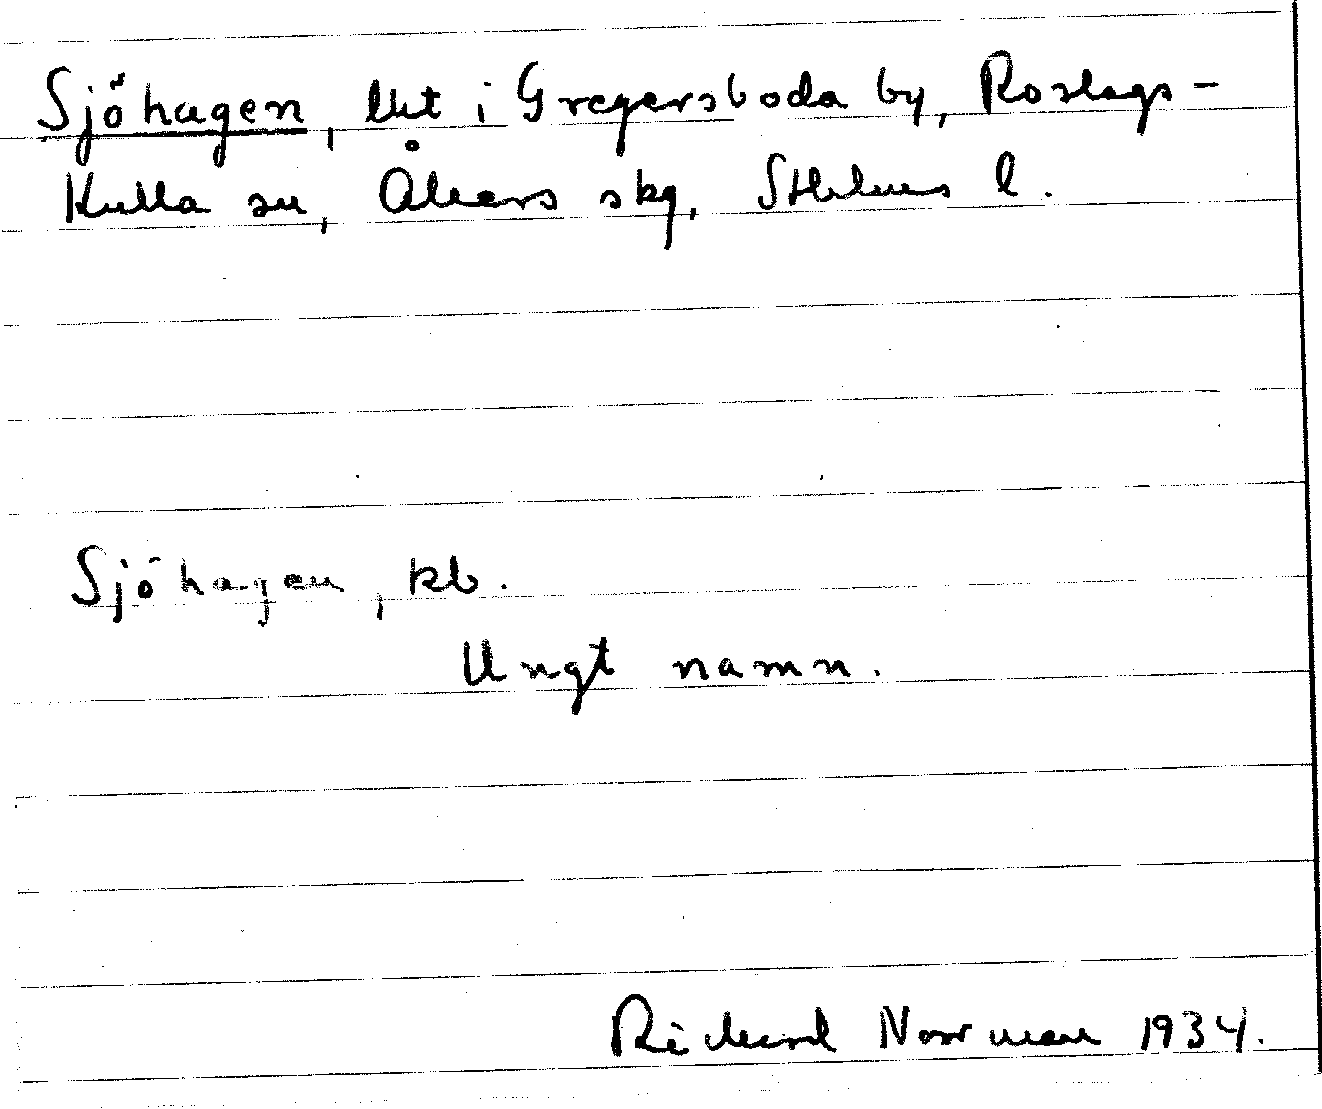 Sjöhagen, lht i Gregersboda by, Roslags-
Kulla sn, Åkers skg, Sthlms l.
Sjöhagen, kb.
Ungt namn.
Rickard Norrman 1934.